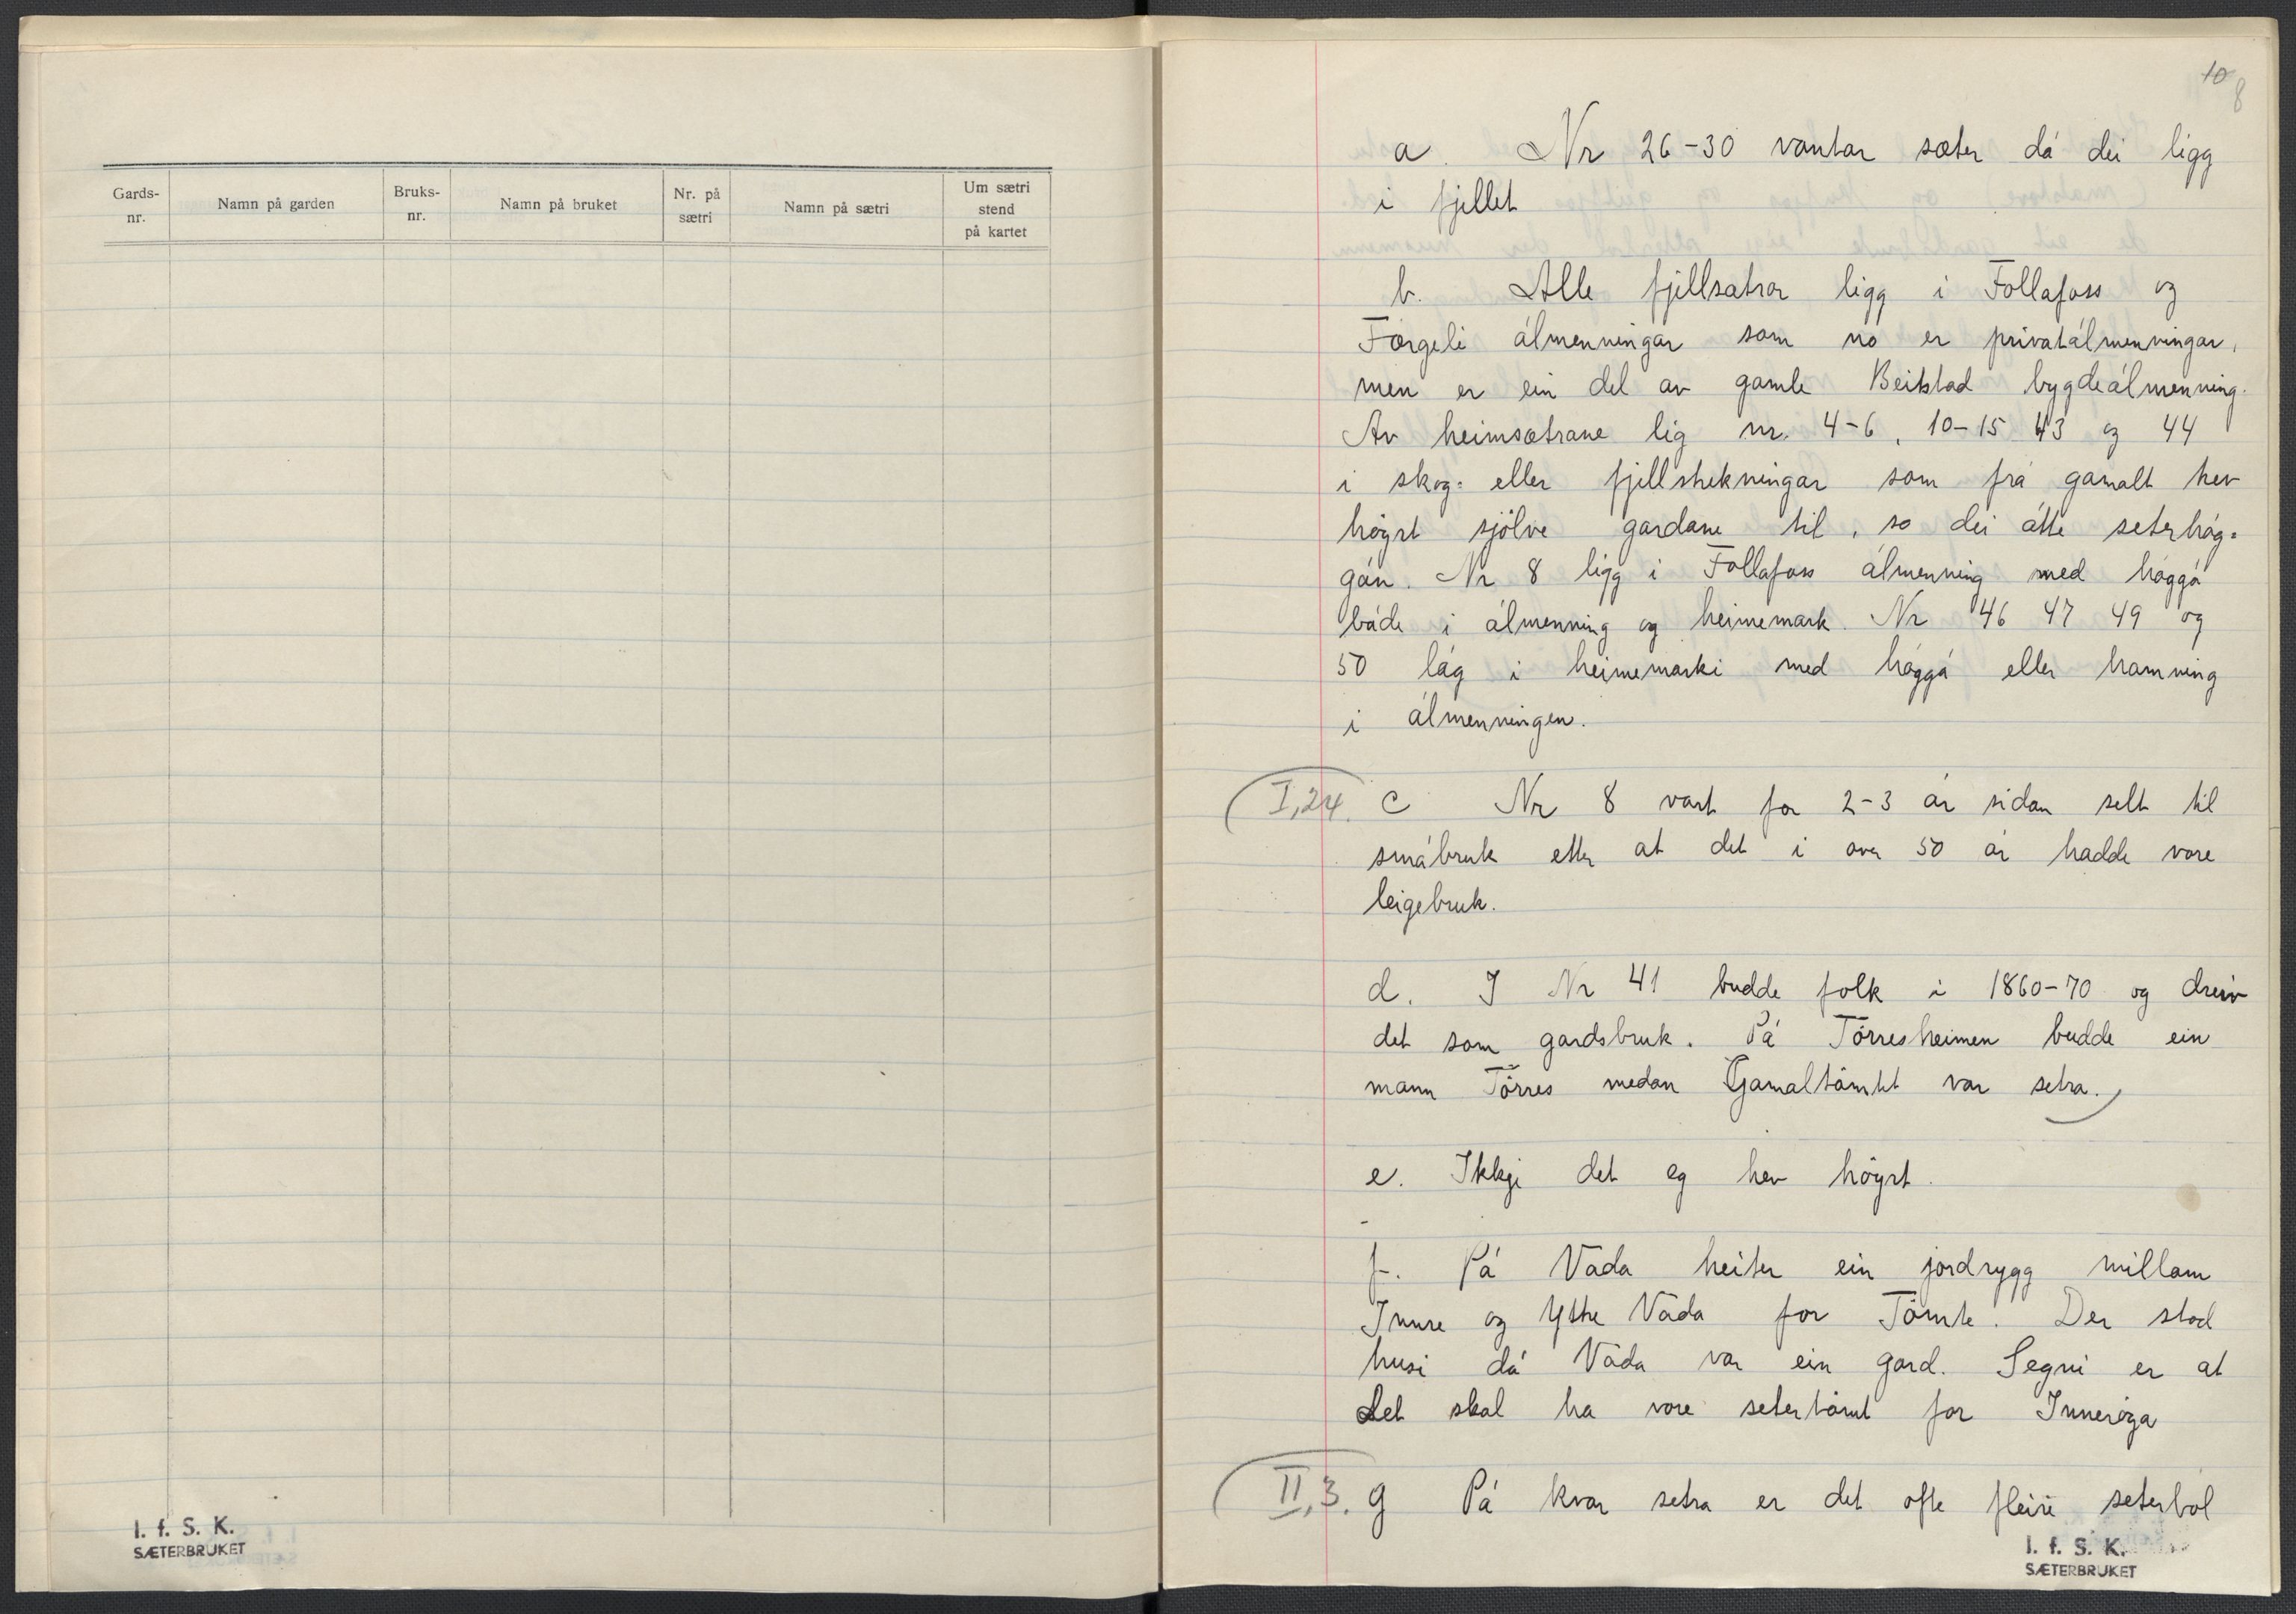 Gards-
nr.
Namn på garden
Bruks-
nr.
Namn på bruket
Nr. på
sætri
Namn på sætri
Um sætri
stend
på kartet
I. f. S. K.
SÆTERBRUKET
10
8
a. Nr 26-30 vantar sæter då dei ligg
i fjellet
b. Alle fjellsætrar ligg i Follafoss og
Færgeli ålmenningar som no er privatålmenningar,
men er ein del av gamle Beitstad bygdeålmenning.
Av heimsætrane lig nr. 4-6, 10-15 43 og 44
i skog- eller fjellstrekningar som frå gamalt hev
høyrt sjölve gardane til, so dei åtte seterhåg-
gån. Nr 8 ligg i Follafoss ålmenning med håggå
både i ålmenning og heimemark. Nr 46 47 49 og
50 låg i heimemarki med håggå eller hamning
i ålmenningen.
I,24. c Nr 8 vart for 2-3 år sidan selt til
småbruk etter at det i over 50 år hadde vore
leigebruk.
d. I Nr 41 budde folk i 1860-70 og dreiv
det som gardsbruk. På Törresheimen budde ein
mann Törres medan Gamaltömtet var setra.
e. Ikkje det eg hev höyrt.
f. På Våda heiter ein jordrygg millom
Innre og Ytte Våda for Tömte. Der stod
husi då Våda var ein gard. Segni er at
det skal ha vore setertömt for Inneröga
II,3. g På kvar setra er det ofte fleire seterbol
I. f. S. K.
SÆTERBRUKET